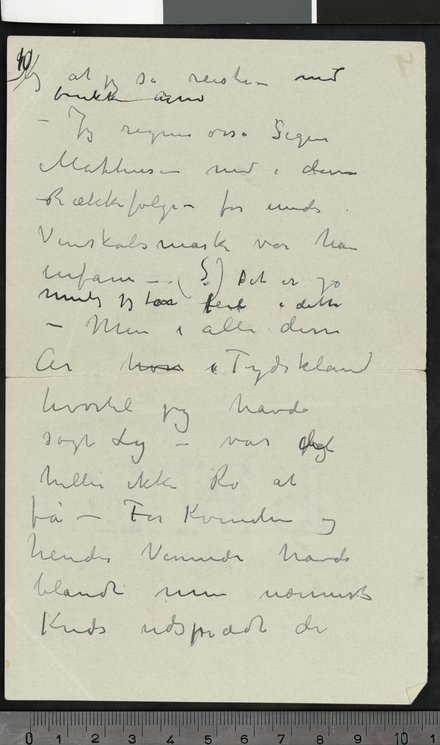 10
at jeg så reiste – med
brukken arm
– Jeg regner også Sigur
Mathiesen med i denne
Rækkefølge – for under
Venskabs maske var han
infam – (S?) Det er jo
mulig jeg tar feil i dette
– Men i alle disse
År i Tydskland
hvortil jeg havde
søgt Ly – var
heller ikke Ro at
få – For Kvinden og
hendes Venner havde
blandt min nærmeste
Kreds udspredt de